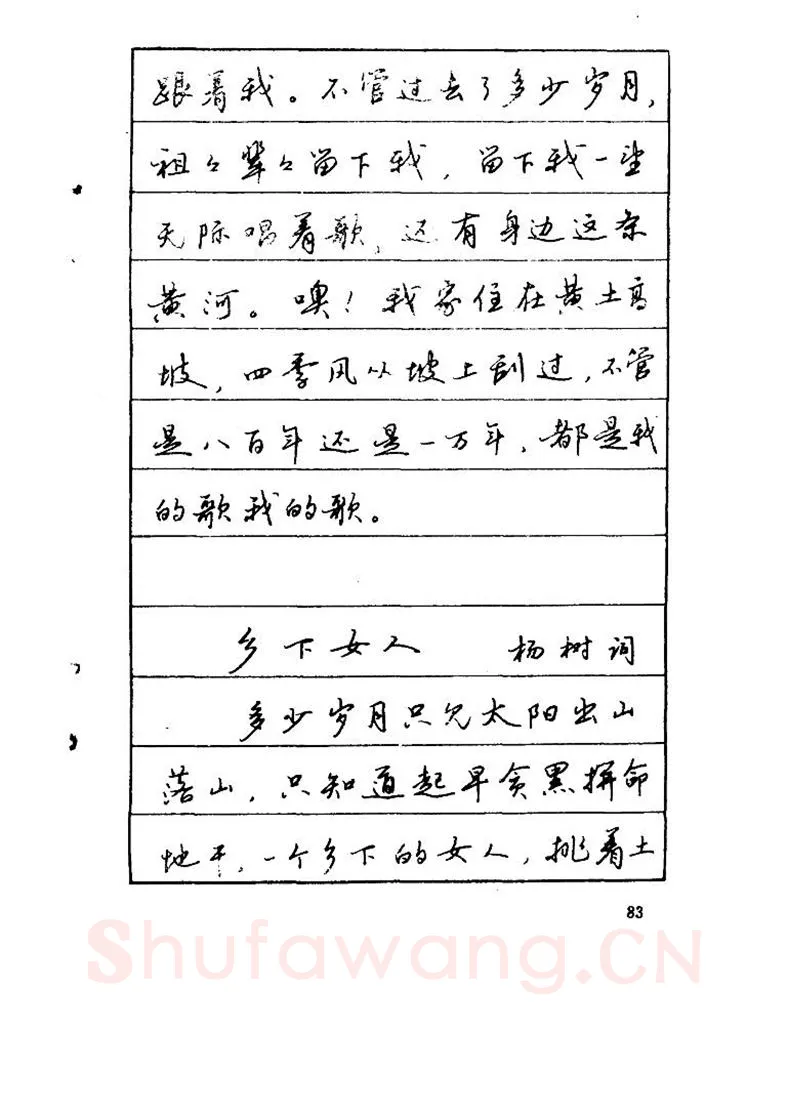 跟着我。不管过去了多少岁月，
祖々辈々留下我，留下我一望
无际唱着歌，还有身边这条
黄河。噢！我家住在黄土高
坡，四季风从坡上刮过，不管
是八百年还是一万年，都是我
的歌我的歌。
乡下女人 杨树词
多少岁月只见太阳出山
落山，只知道起早贪黑拼命
地干，一个乡下的女人，挑着土
83
Shufawang.CN